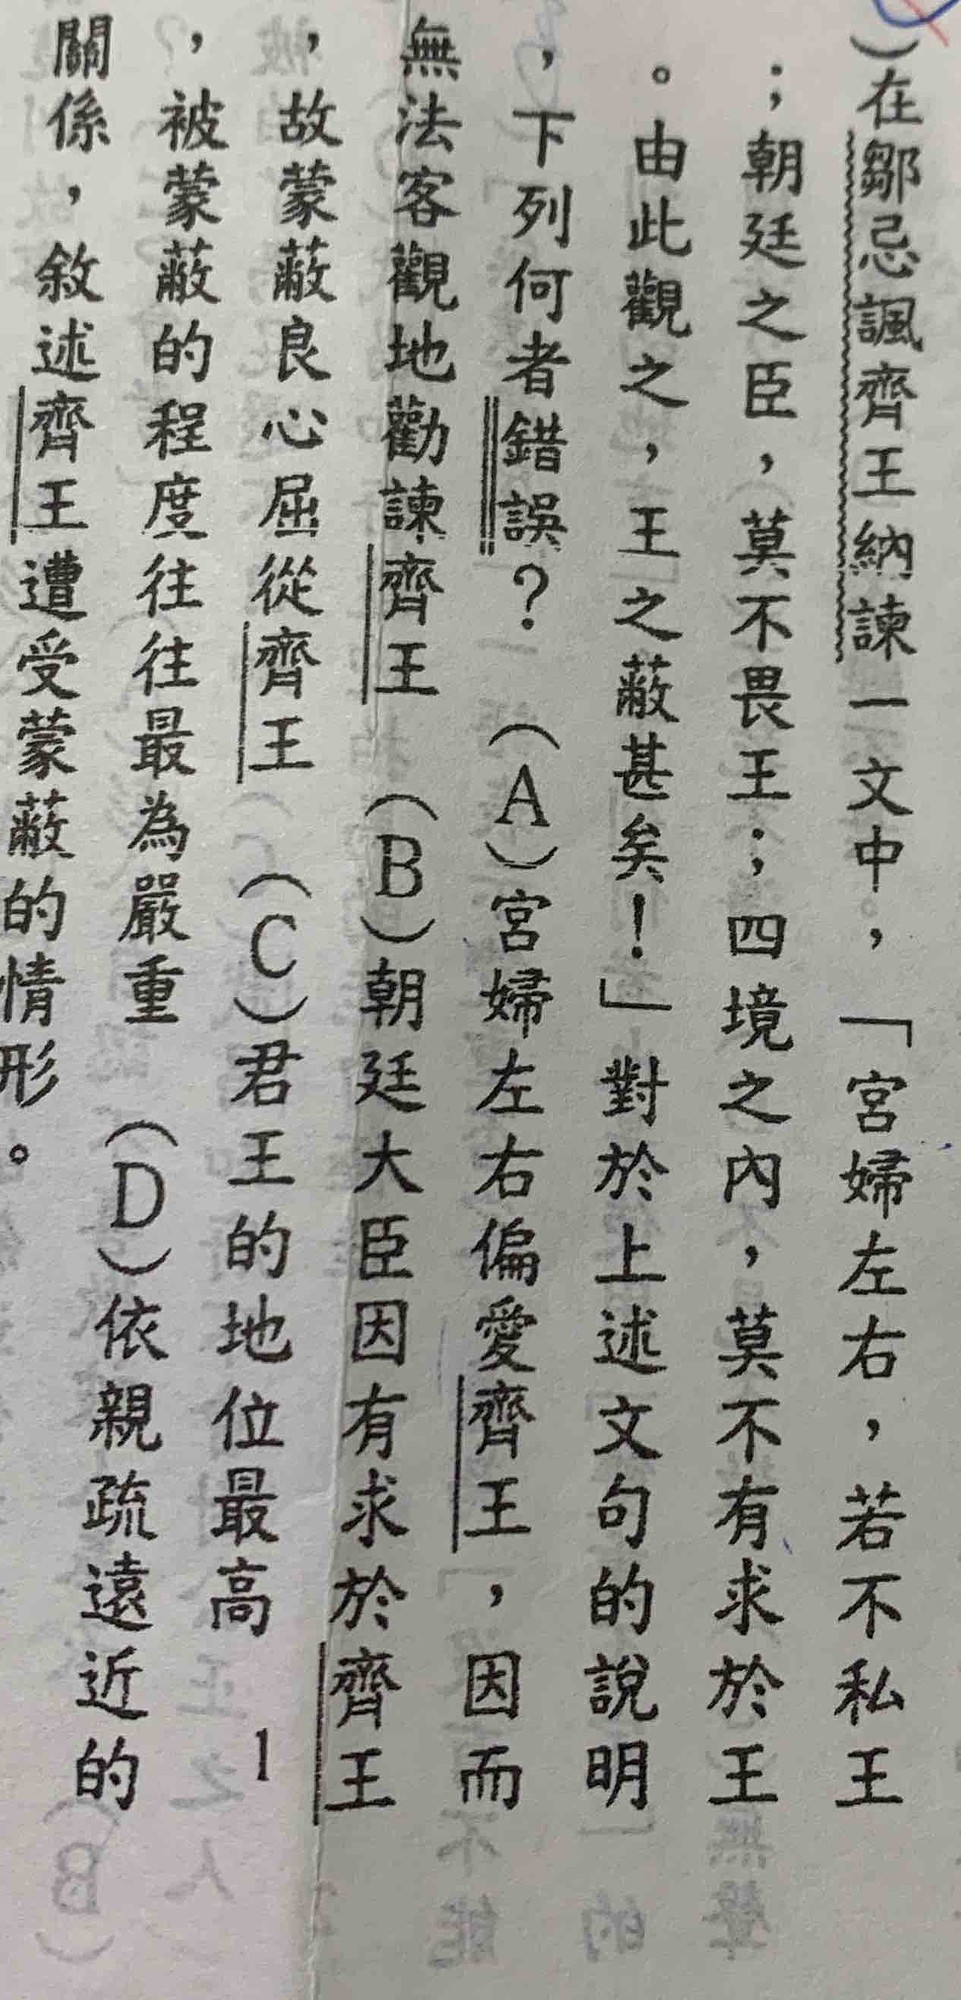 ）在鄒忌諷齊王納諫一文中，「宮婦左右，若不私王
；朝廷之臣，莫不畏王；四境之內，莫不有求於王
。由此觀之，王之蔽甚矣！」對於上述文句的說明
，下列何者錯誤？　（A）宮婦左右偏愛齊王，因而
無法客觀地勸諫齊王　（B）朝廷大臣因有求於齊王
，故蒙蔽良心屈從齊王　（C）君王的地位最高
，被蒙蔽的程度往往最為嚴重　（D）依親疏遠近的
關係，敘述齊王遭受蒙蔽的情形。
1